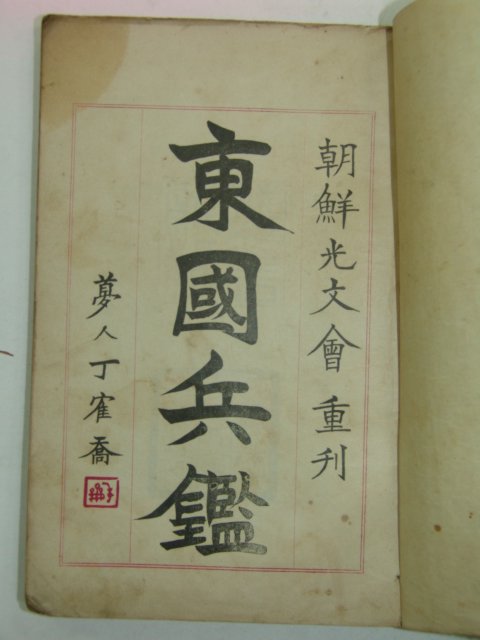 朝鮮光文會重刊
東國兵鑑
夢人丁寉喬